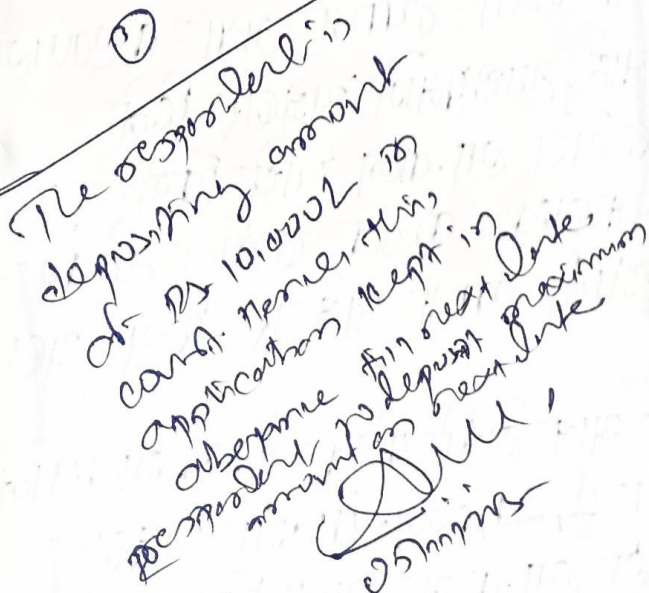 ①
The respondent is
depositing amount
of Rs 10,000/- in
court. Hence, this
application kept in
abeyance till next date.
respondent to deposit maximum
amount on next date